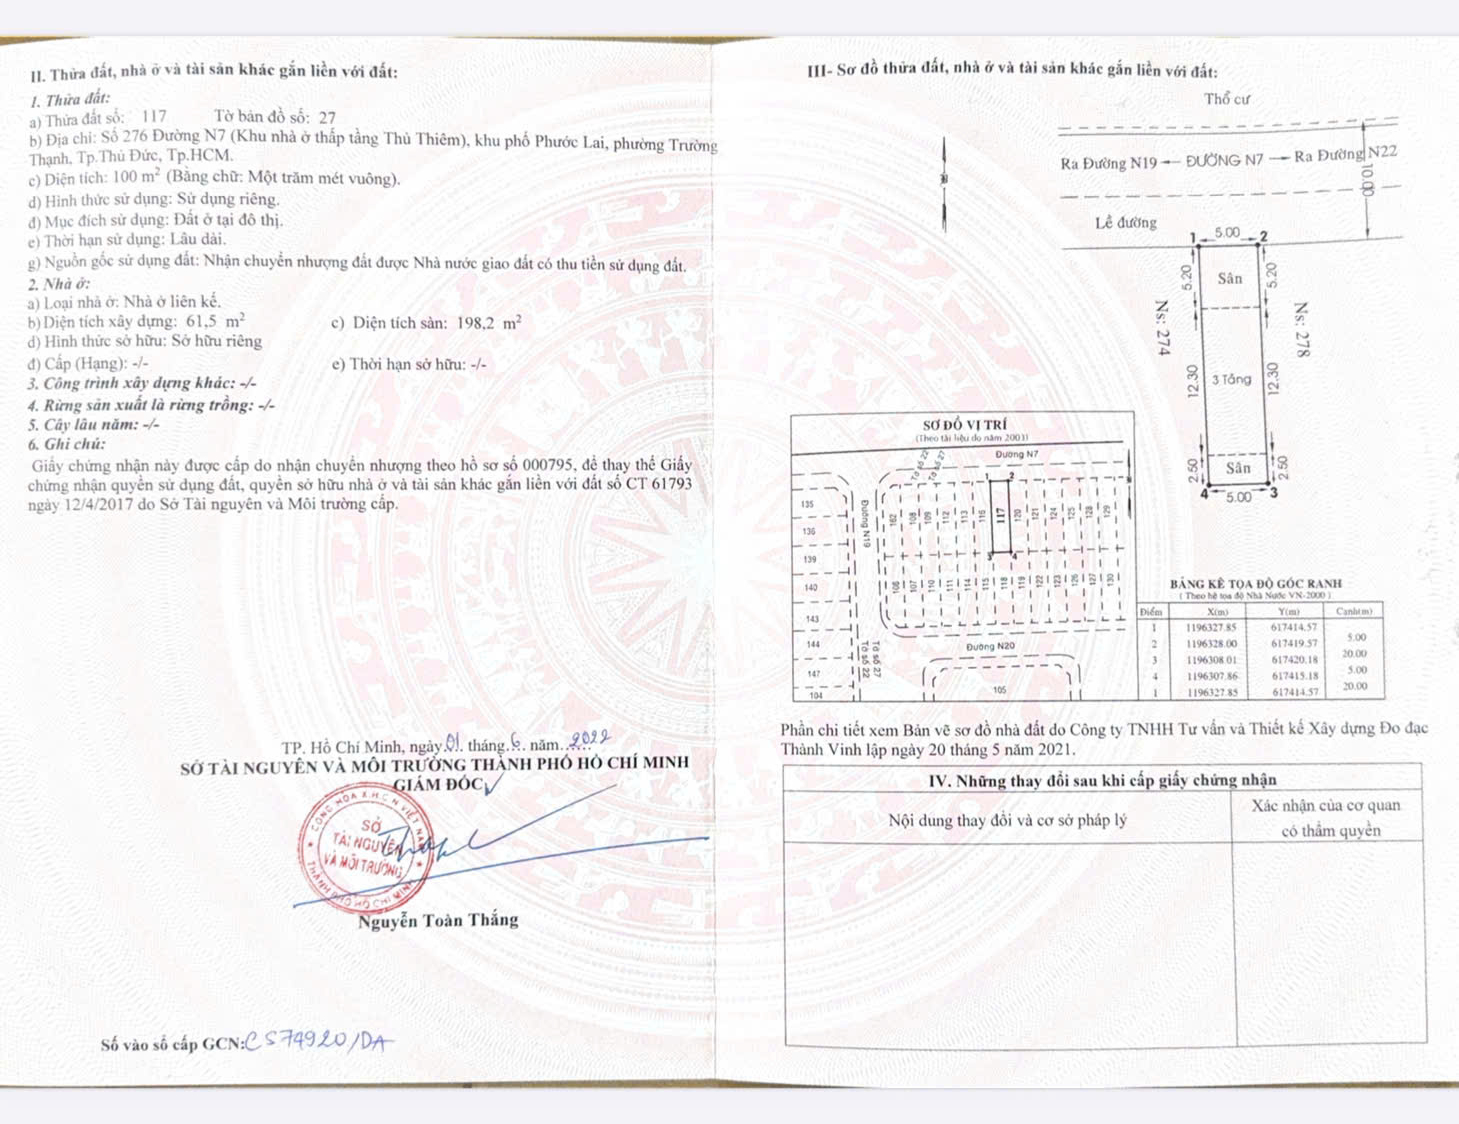 II. Thửa đất, nhà ở và tài sản khác gắn liền với đất:
1. Thửa đất:
a) Thửa đất số: 117 Tờ bản đồ số: 27
b) Địa chỉ: Số 276 Đường N7 (Khu nhà ở thấp tầng Thủ Thiêm), khu phố Phước Lai, phường Trường
Thạnh, Tp.Thủ Đức, Tp.HCM.
c) Diện tích: 100 m² (Bằng chữ: Một trăm mét vuông).
d) Hình thức sử dụng: Sử dụng riêng.
đ) Mục đích sử dụng: Đất ở tại đô thị.
e) Thời hạn sử dụng: Lâu dài.
g) Nguồn gốc sử dụng đất: Nhận chuyển nhượng đất được Nhà nước giao đất có thu tiền sử dụng đất.
2. Nhà ở:
a) Loại nhà ở: Nhà ở liên kế.
b) Diện tích xây dựng: 61,5 m² c) Diện tích sàn: 198,2 m²
d) Hình thức sở hữu: Sở hữu riêng
đ) Cấp (Hạng): -/- e) Thời hạn sở hữu: -/-
3. Công trình xây dựng khác: -/-
4. Rừng sản xuất là rừng trồng: -/-
5. Cây lâu năm: -/-
6. Ghi chú:
Giấy chứng nhận này được cấp do nhận chuyển nhượng theo hồ sơ số 000795, để thay thế Giấy
chứng nhận quyền sử dụng đất, quyền sở hữu nhà ở và tài sản khác gắn liền với đất số CT 61793
ngày 12/4/2017 do Sở Tài nguyên và Môi trường cấp.
TP. Hồ Chí Minh, ngày 01 tháng 6 năm 2022
SỞ TÀI NGUYÊN VÀ MÔI TRƯỜNG THÀNH PHỐ HỒ CHÍ MINH
GIÁM ĐỐC
CỘNG HÒA X.H.C.N VIỆT NAM
SỞ
TÀI NGUYÊN
VÀ MÔI TRƯỜNG
THÀNH PHỐ HỒ CHÍ MINH
Nguyễn Toàn Thắng
Số vào sổ cấp GCN: CS74920/DA
III- Sơ đồ thửa đất, nhà ở và tài sản khác gắn liền với đất:
Thổ cư
Ra Đường N19 ĐƯỜNG N7 Ra Đường N22
10.00
Lề đường
1 5.00 2
5.20 Sân 5.20
Ns: 274
Ns: 278
12.30 3 Tầng 12.30
2.50 Sân 2.50
4 5.00 3
SƠ ĐỒ VỊ TRÍ
(Theo tài liệu đo năm 2003)
Đường N7
Tờ số 22
Tờ số 27
1 2
135
136
139
140
143
144
147
104
Đường N19
162 108 109 112 113 116 117 120 121 124 125 128 129
3 4
106 107 110 111 114 115 118 119 122 123 126 127 130
Đường N20
Tờ số 27
Tờ số 22
105
BẢNG KÊ TỌA ĐỘ GÓC RANH
( Theo hệ tọa độ Nhà Nước VN-2000 )
Điểm X(m) Y(m) Cạnh(m)
1 1196327.85 617414.57
5.00
2 1196328.00 617419.57
20.00
3 1196308.01 617420.18
5.00
4 1196307.86 617415.18
20.00
1 1196327.85 617414.57
Phần chi tiết xem Bản vẽ sơ đồ nhà đất do Công ty TNHH Tư vấn và Thiết kế Xây dựng Đo đạc
Thành Vinh lập ngày 20 tháng 5 năm 2021.
IV. Những thay đổi sau khi cấp giấy chứng nhận
Nội dung thay đổi và cơ sở pháp lý
Xác nhận của cơ quan
có thẩm quyền